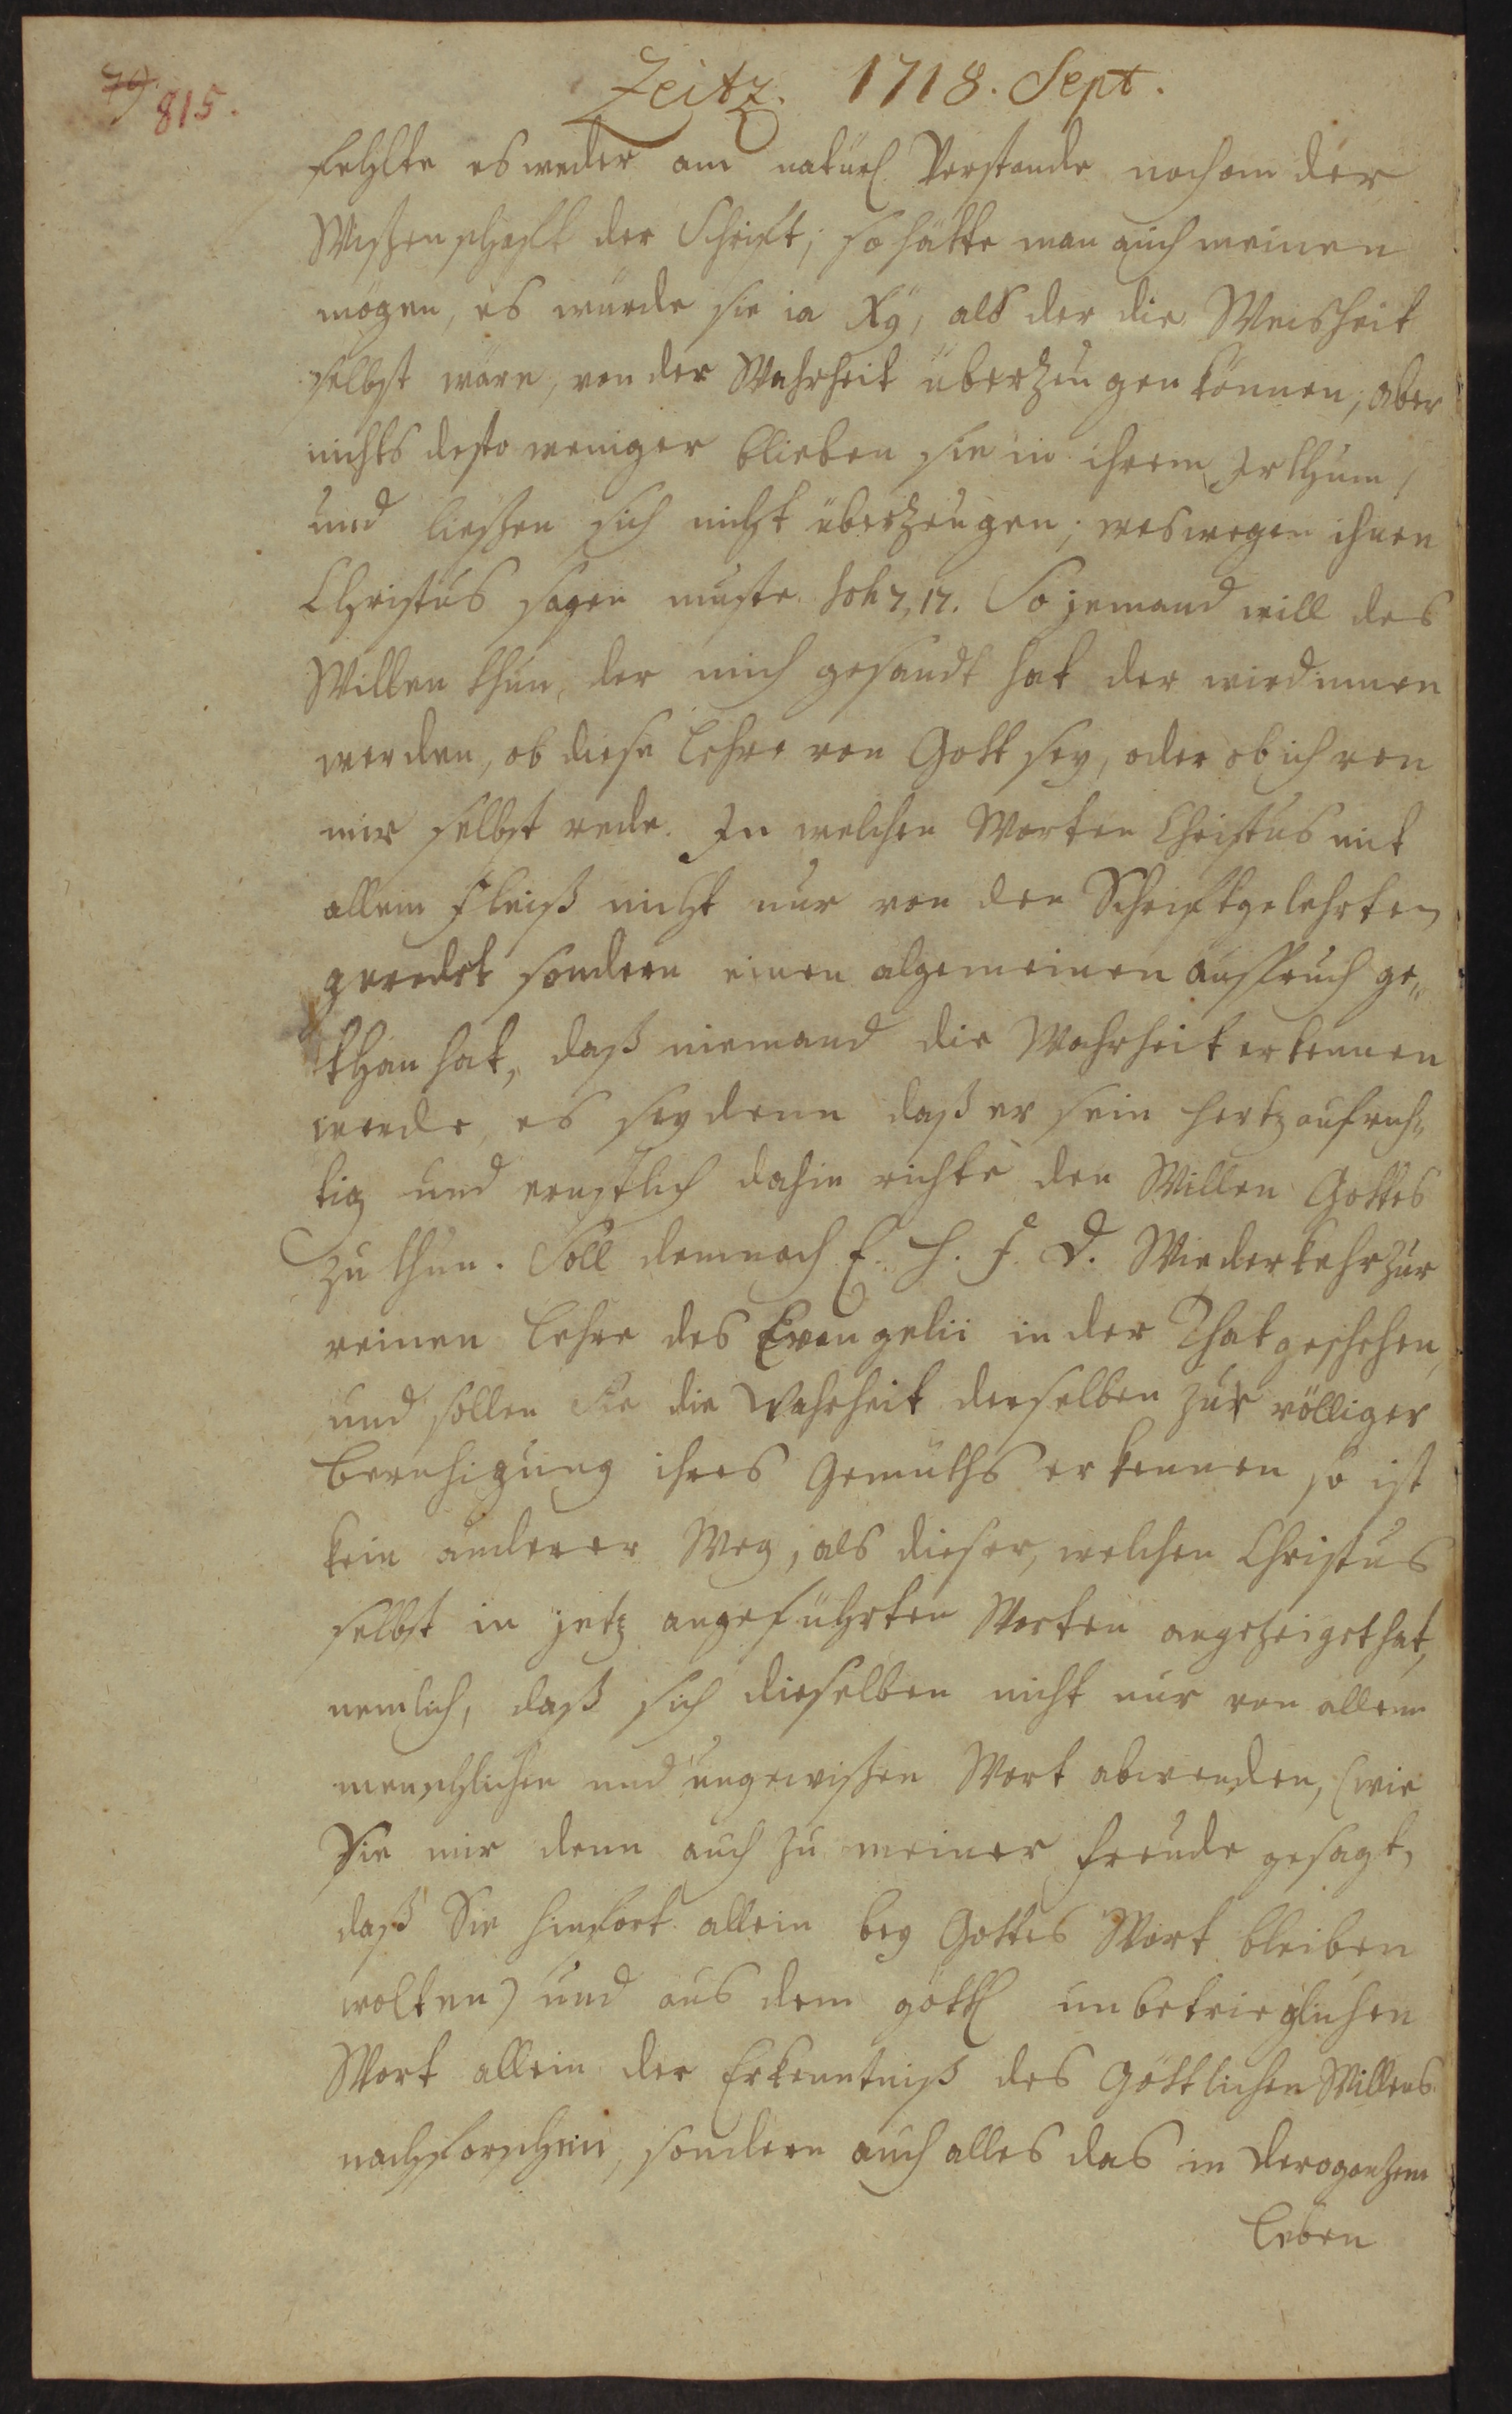 79.
815.
Zeitz. 1718. Sept.
fehlte es weder am natürl Verstande noch an der
Wißenschafft der Schrifft; so hätte man auch meinen
mögen, es würde sie ia Xq, als der die Weisheit
selbst wäre, von der Wahrheit überzeugen können, aber
nichts desto weniger blieben sie in ihrem Irthum,
und ließen sich nicht überzeugen; weswegen ihnen
Christus sagen muste Joh 7, 17. So jemand will des
Willen thun, der mich gesandt hat der wird innen
werden, ob diese Lehre von Gott sey, oder ob ich von
mir selbst rede. In welchen Worten Christus mit
allem Fleiß nicht nur von den Schrifftgelehrten
geredet sondern einen algemeinen ausspruch ge„
than hat, daß niemand die Wahrheit erkennen
werde, es sey denn daß er sein Hertz aufrich„
tig und ernstlich dahin richte den Willen Gottes
zu thun. Soll demnach E. H. F. D. Wiederkehr zur
reinen Lehre des Evangelii in der That geschehen,
und sollen Sie die Wahrheit derselben zur völliger
Beruhigung ihres Gemüths erkennen so ist
kein anderer Weg, als dieser, welchen Christus
selbst in jetz angeführten Worten angezeiget hat,
nemlich, daß sich dieselben nicht nur von allem
menschlichen und ungewißen Wort abwenden, (wie
Sie mir denn auch zu meiner Freude gesagt,
daß Sie hinfort allein bey Gottes Wort bleiben
wolten) und aus dem göttl unbetrieglichen
Wort allein der Erkenntniß des Göttlichen Willens
nachforschen, sondern auch alles das in Dero ganzem
Leben